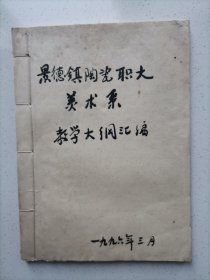 景德鎮陶瓷职大
美术系
教学大纲汇编
一九九六年三月